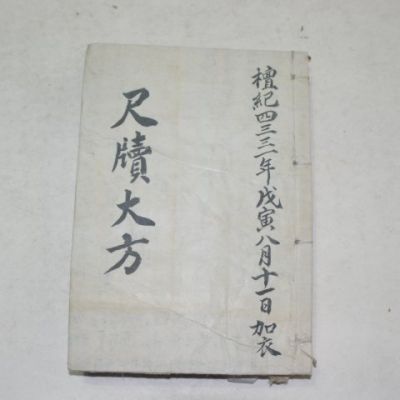 檀紀四三三一年戊寅八月十一日加衣
尺牘大方